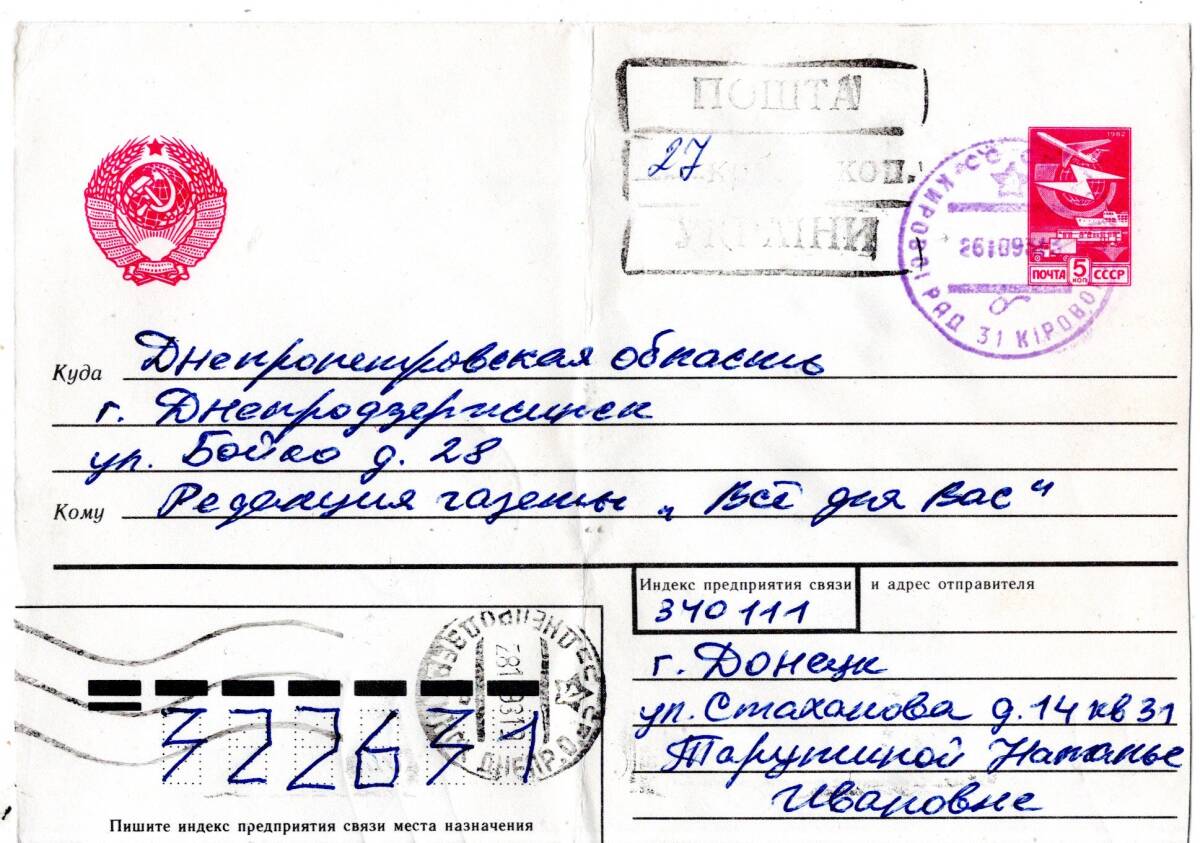 ПОШТА
27
коп.
УКРАЇНИ
1982
ПОЧТА 5 КОП СССР
31 КІРОВО
Куда Днепропетровская область
г. Днепродзержинск
ул. Бойко д. 28
Кому Редакция газеты „Всё для Вас"
Индекс предприятия связи и адрес отправителя
340111
г. Донецк
ул. Стаханова д. 14 кв 31
Тарутиной Наталье
Ивановне
322631
Пишите индекс предприятия связи места назначения